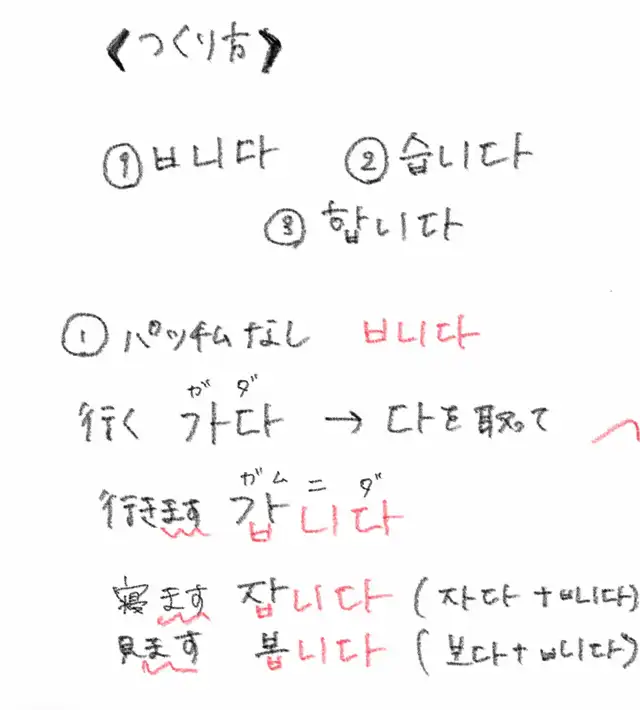 《つくり方》
① ㅂ니다 ② 습니다
③ 합니다
① パッチムなし ㅂ니다
ガ ダ
行く 가다 → 다を取って
ガム ニ ダ
行きます 갑니다
寝ます 잡니다 (자다 + ㅂ니다)
見ます 봅니다 (보다 + ㅂ니다)